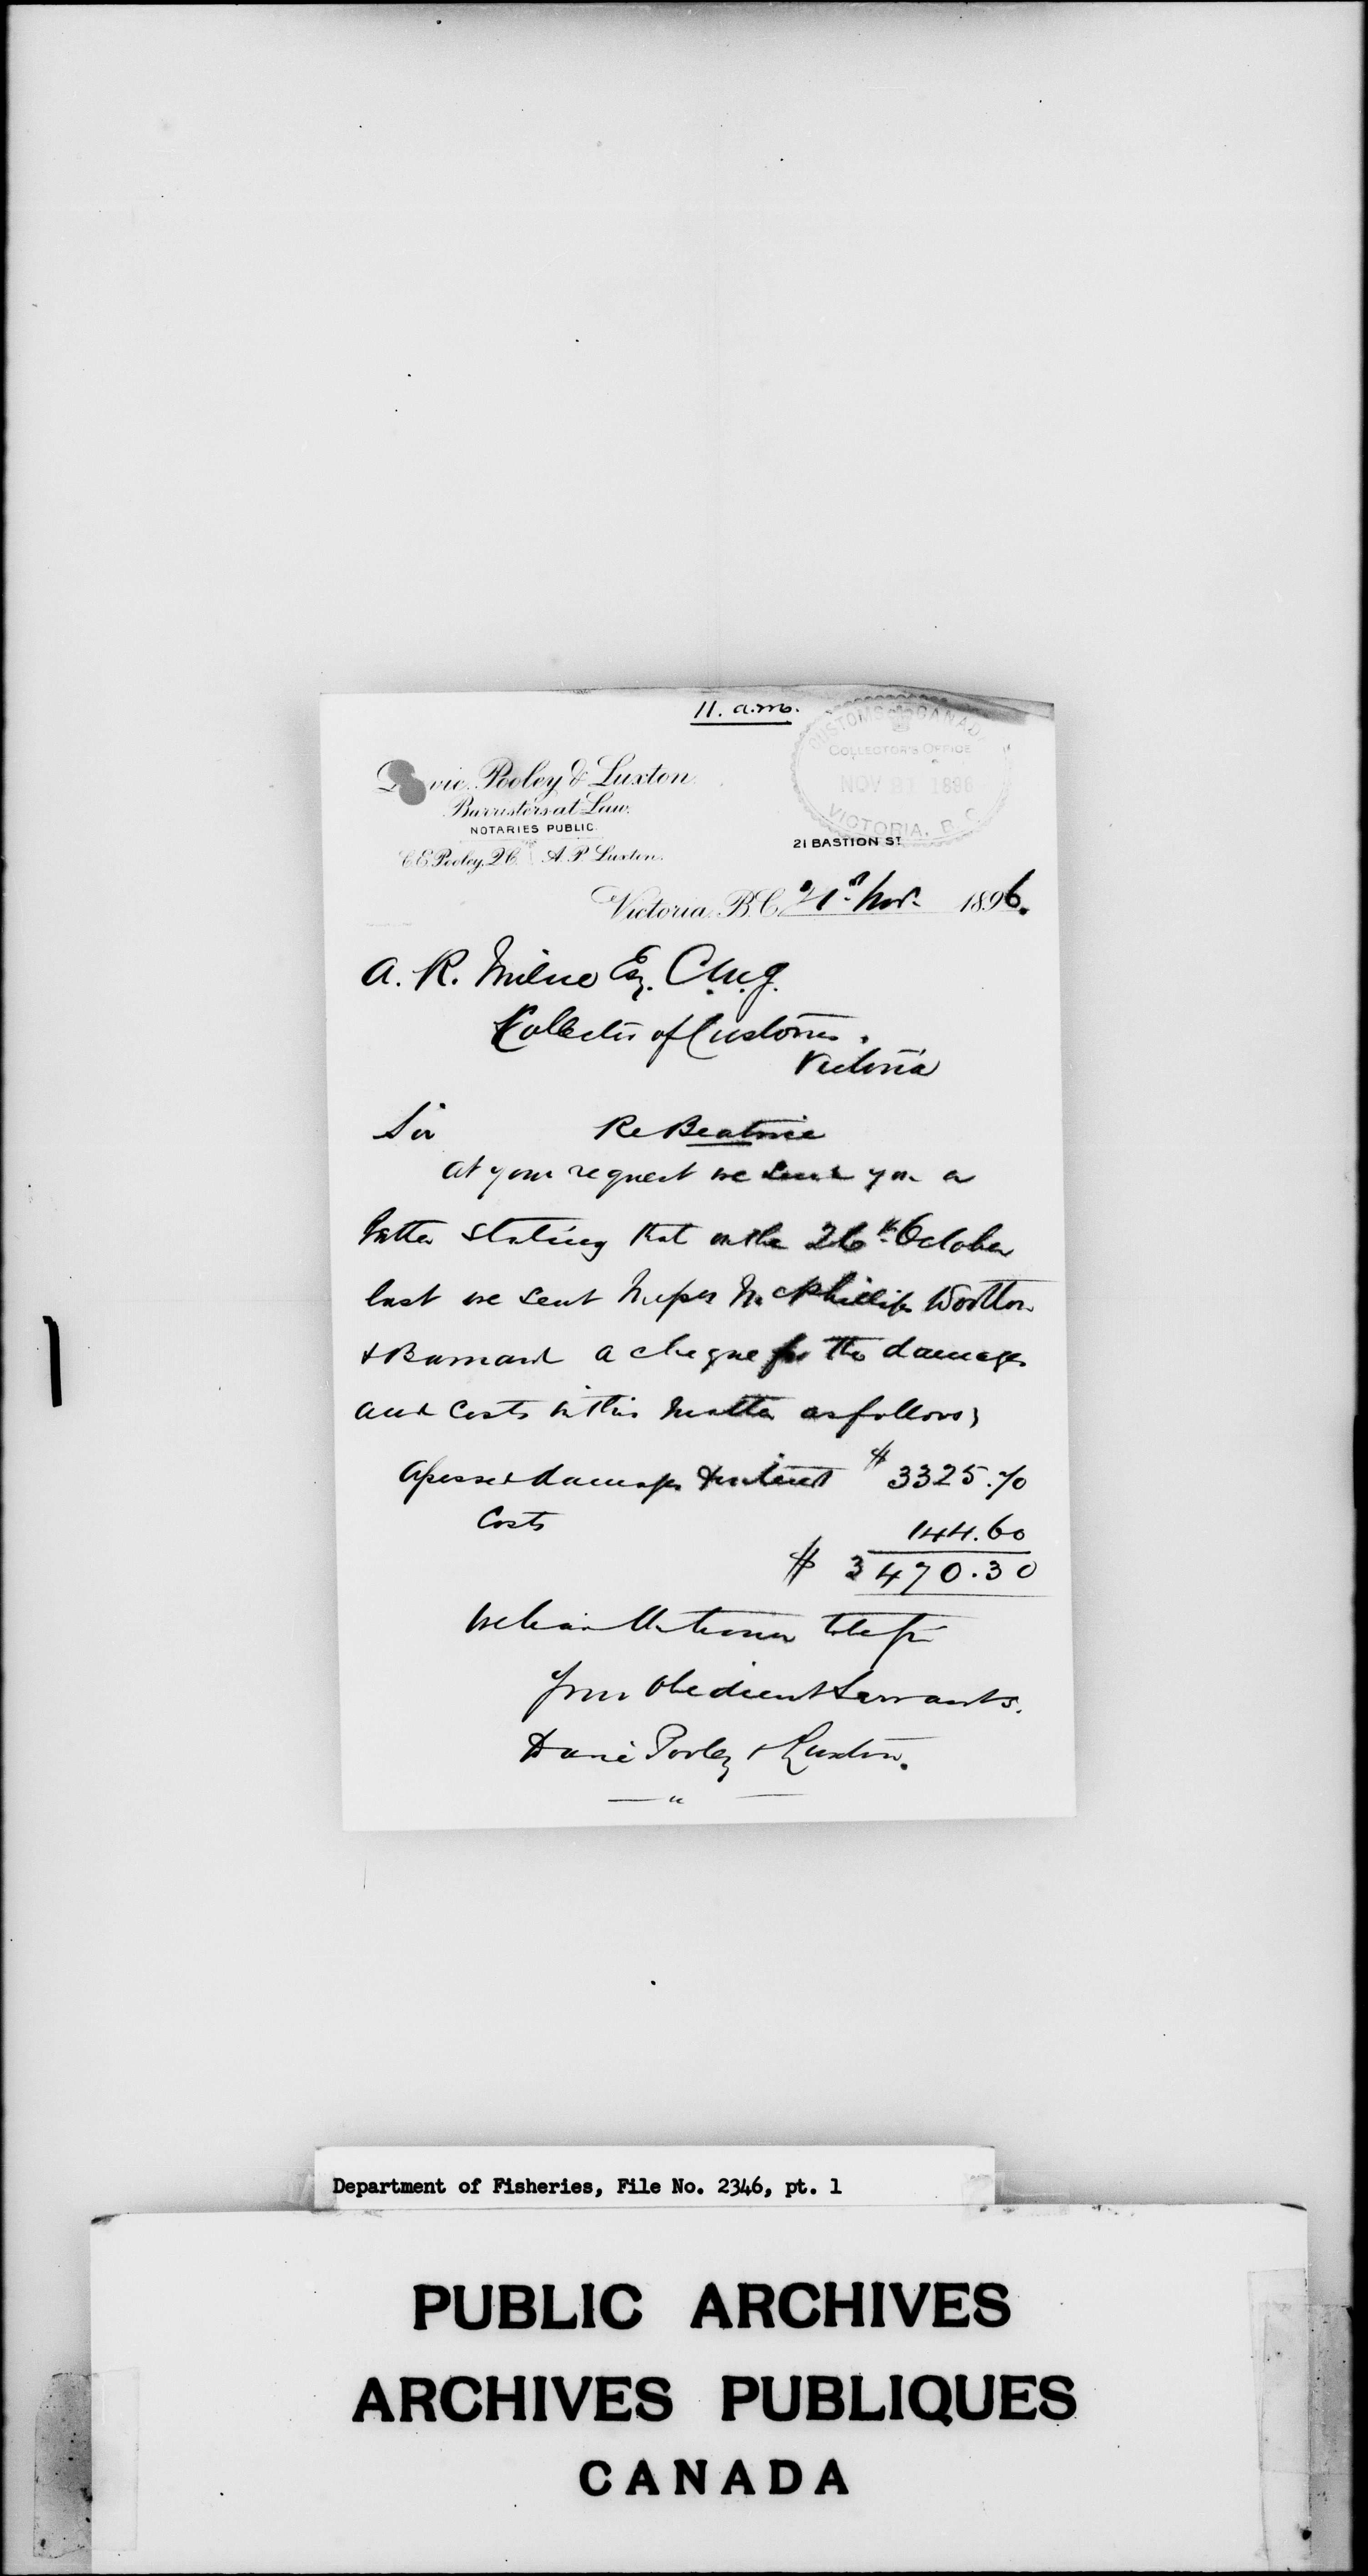 11. a.m.
CUSTOMS CANADA
COLLECTOR'S OFFICE
NOV 21 1896
VICTORIA, B.C.
vie, Pooley & Luxton.
Barristers at Law.
NOTARIES PUBLIC.
21 BASTION ST
C.E. Pooley, Q.C. A.P. Luxton.
Victoria, B.C. 21st Nov. 1896.
A. R. Milne Esq. C.M.G.
Collector of Customs.
Victoria
Sir Re Beatrice
At your request we send you a
letter stating that on the 26th October
last we sent Messrs McPhillips Wootton
& Barnard a cheque for the damages
and costs in this matter as follows;
Assessed damages & interest $3325.70
Costs 144.60
$ 3470.30
We have the honor to be Sir
Your obedient servants.
Davie Pooley & Luxton.
Department of Fisheries, File No. 2346, pt. 1
PUBLIC ARCHIVES
ARCHIVES PUBLIQUES
CANADA